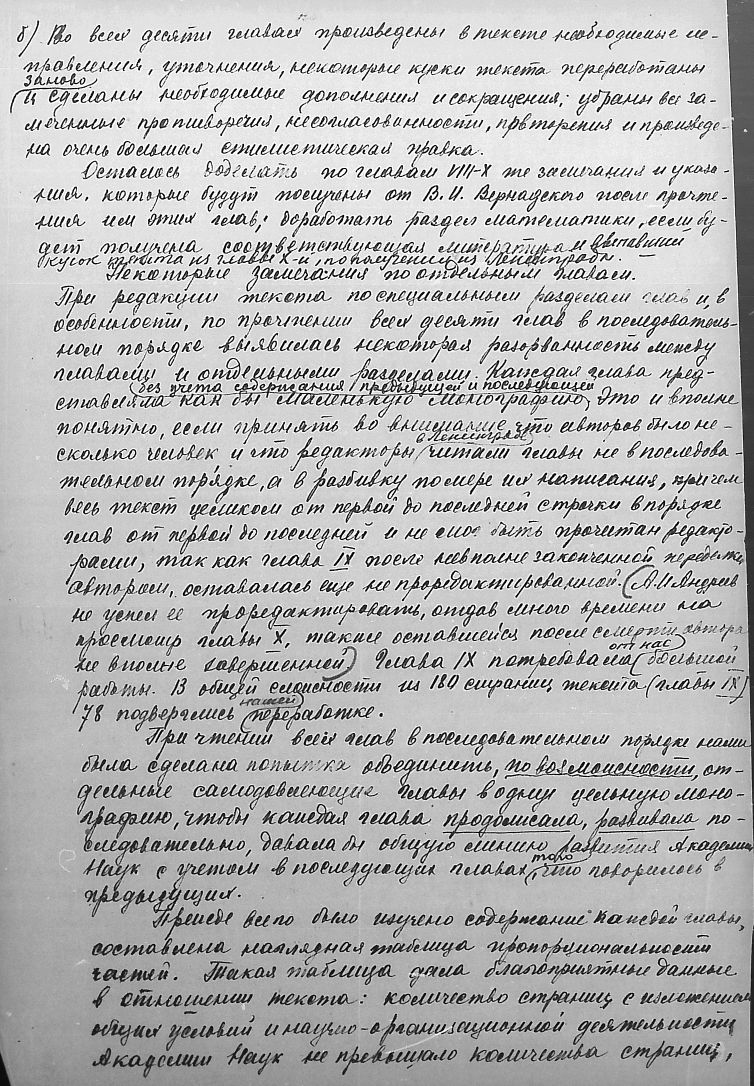 б) Во всех десяти главах произведены в тексте необходимые ис-
правления, уточнения, некоторые куски текста переработаны
заново
и сделаны необходимые дополнения и сокращения; убраны все за-
меченные противоречия, несогласованности, повторения и произведе-
на очень большая стилистическая правка.
Осталось доделать по главам VIII-X те замечания и указа-
ния, которые будут получены от В.И. Вернадского после прочте-
ния им этих глав; доработать раздел математики, если бу-
дет получена соответствующая литература и вставить
кусок текста из главы X-й, по получении из Ленинграда.
Некоторые замечания по отдельным главам.
При редакции текста по специальным разделам глав и, в
особенности, по прочтении всех десяти глав в последователь-
ном порядке выявилась некоторая разорванность между
главами и отдельными разделами. Каждая глава пред-
без учета содержания предыдущей и последующей
ставляла как бы маленькую монографию. Это и вполне
понятно, если принять во внимание, что авторов было не-
в Ленинграде
сколько человек и что редакторы читали главы не в последова-
тельном порядке, а в разбивку по мере их написания, причем
весь текст целиком от первой до последней строчки в порядке
глав от первой до последней и не мог быть прочитан редакто-
рами, так как глава IX после невполне законченной переделки
автором, оставалась еще не проредактированной. (А.И. Андреев
не успел ее проредактировать, отдав много времени на
просмотр главы X, также оставшейся после смерти автора
от нас
не вполне завершенной) Глава IX потребовала большой
работы. В общей сложности из 180 страниц текста (главы IX)
нашей
78 подверглись переработке.
При чтении всех глав в последовательном порядке нами
была сделана попытка объединить, по возможности, от-
дельные самодовлеющие главы в одну цельную моно-
графию, чтобы каждая глава продолжала, развивала по-
следовательно, давала бы общую линию развития Академии
Наук с учетом в последующих главах
того
что говорилось в
предыдущих.
Прежде всего было изучено содержание каждой главы,
составлена наглядная таблица пропорциональности
частей. Такая таблица дала благоприятные данные
в отношении текста: количество страниц с изложением
общих условий и научно-организационной деятельности
Академии Наук не превышало количества страниц,